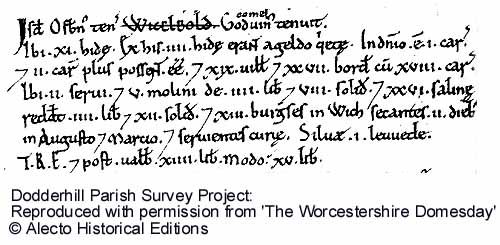 Isd̄ Osb̄n᷎ ten᷎ WICELBOLD. Goduin᷎ comes tenuit.
Ibi .xi. hidę. Ex his .iiii. hidę eran̄t a geldo q᷎etę. In dn̄io .ē. i. car᷎
⁊ ii. car᷎ plus possen̄t .ēē. ⁊ xix. uilƚi ⁊ xxvii. bord᷎ cū xviii. car᷎.
Ibi .ii. serui. ⁊ v. molini de .iiii. lib᷎ ⁊ viii. solid᷎. ⁊ xxvi. salinę
redd̄t .iiii. lib᷎ ⁊ xii. solid᷎. ⁊ xiii. burḡses in Wich secantes .ii. dieb᷎
in Augusto ⁊ Marcio. ⁊ seruientes curię. Siluæ .i. leuuede.
T.R.E. ⁊ post. ualb̄ .xiiii. lib᷎. modo: xv. lib᷎.
Dodderhill Parish Survey Project:
Reproduced with permission from 'The Worcestershire Domesday'
© Alecto Historical Editions